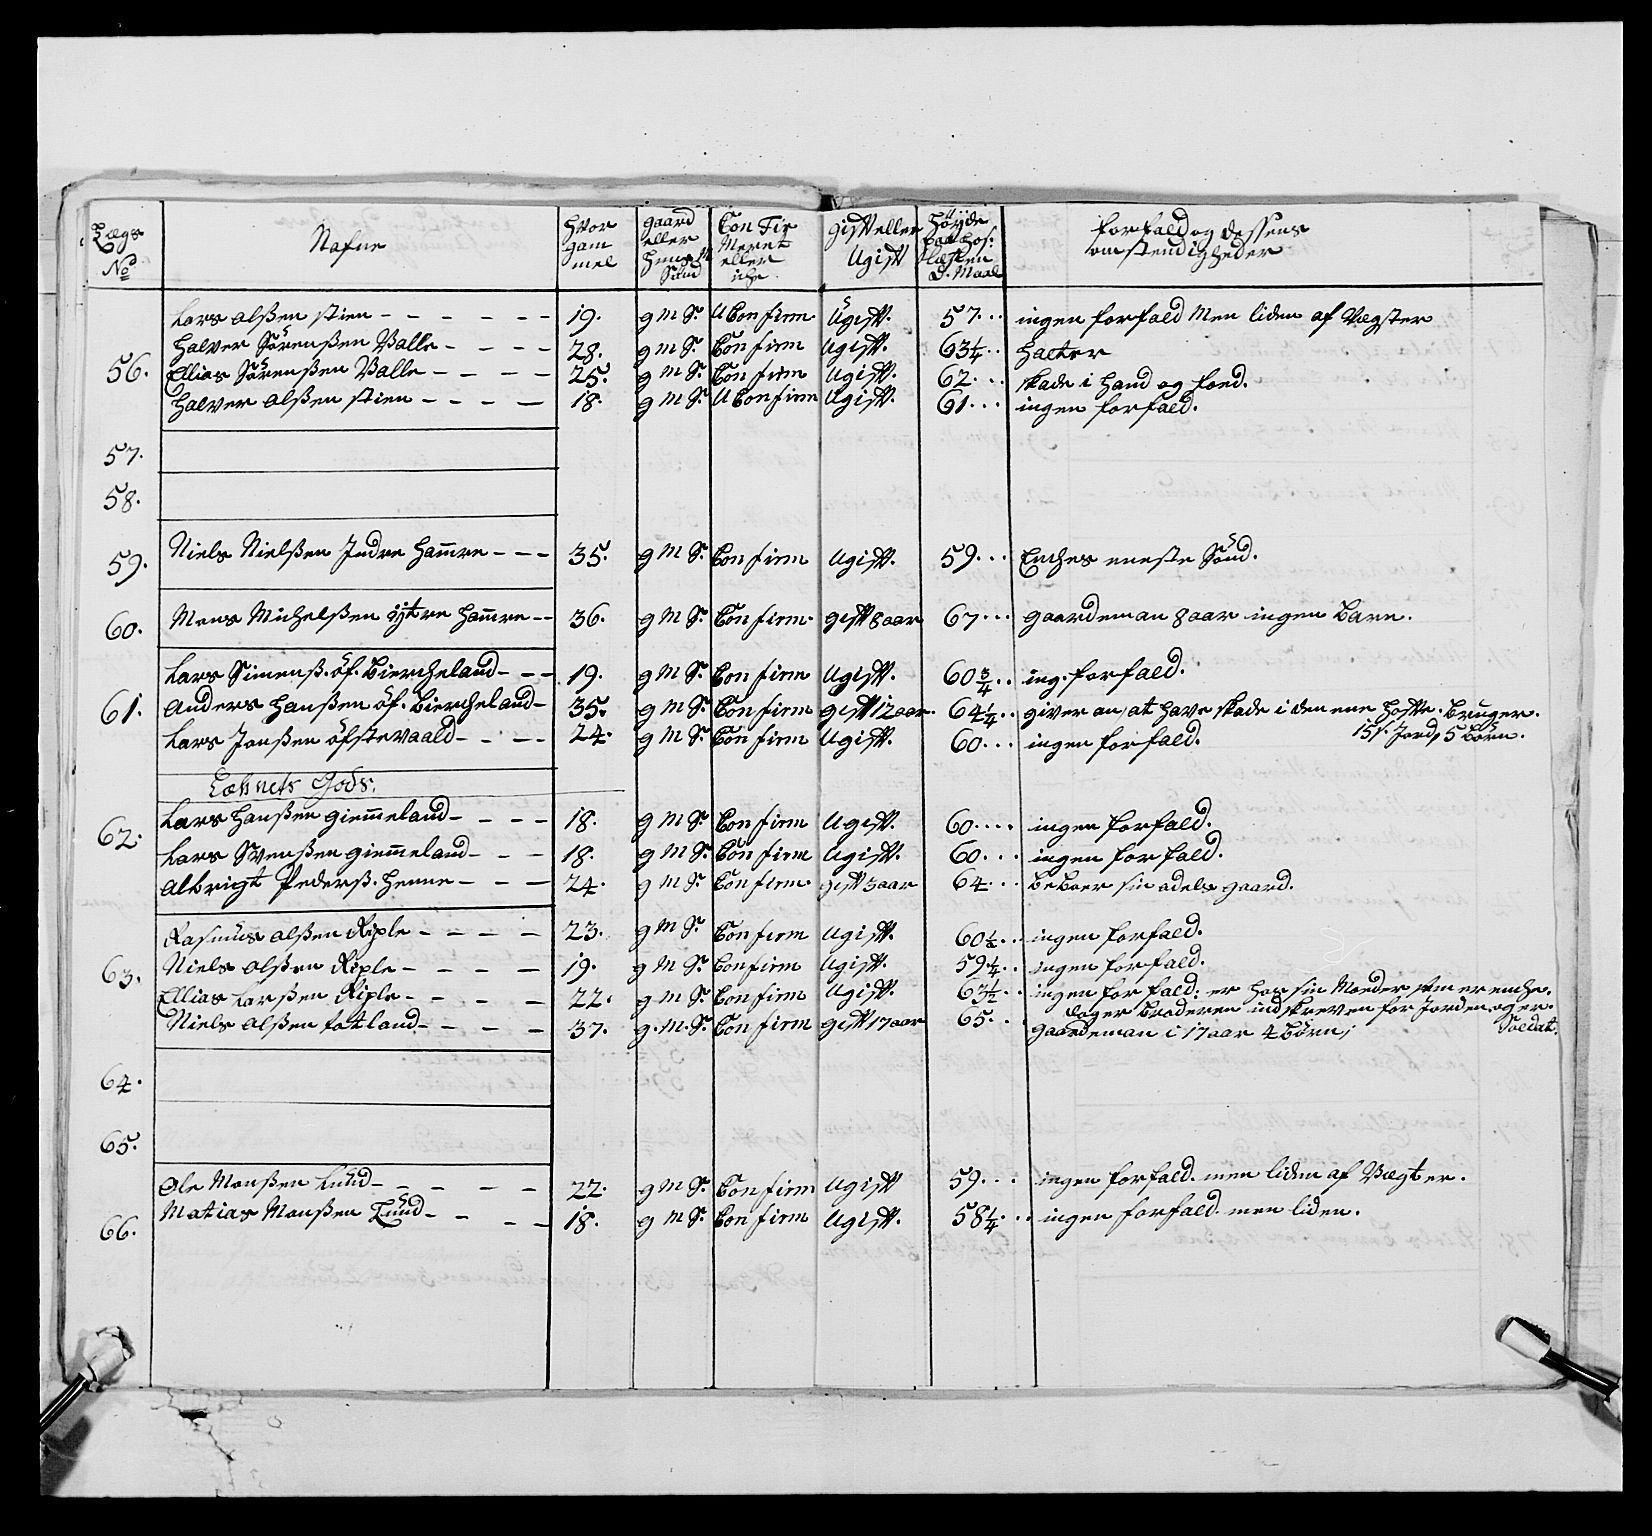 Lægs No | Nafne | hvor gam mel | gaard eller huusM Sønd | Con Fir Meret eller iche | gift eller Ugift | Høyde paa hos: Læsten D. Maal | forfald og dessens omstendigheder
Lars Olßen Stien | 19. | g M S: | U Confirm | Ugift. | 57... | ingen forfald Men liden af Vegster
Halver Sörenßen Valle | 28. | g M S: | Confirm | Ugift. | 63 1/4.. | halter
56. | Ellias Sörenßen Valle | 25. | g M S: | Confirm | Ugift. | 62... | skade i haand og foed.
Halver Olßen Stien | 18. | g M S: | U Confirm | Ugift. | 61... | ingen forfald.
57.
58.
59. | Niels Nielßen Indre Hamre | 35. | g M S: | Confirm | Ugift. | 59... | Enches eneste Sönd.
60. | Mons Michelßen ÿtre Hamre | 36. | g M S: | Confirm. | gift 8 aar | 67... | gaardeman 8 aar ingen barn.
Lars Simenß. öf. Biercheland | 19. | g M S: | Confirm | Ugift. | 60 3/4.. | ing. forfald.
61. | Anders Hanßen öf. Biercheland | 35. | g M S: | Confirm | gift 12 aar. | 64 1/4.. | giver an, at have skade i den ene hofte. bruger.
15 s. Jord, 5 børn.
Lars Jonßen öfstevaald | 24. | g M S: | Confirm | Ugift. | 60... | ingen forfald.
Lehnets Gods:
62. | Lars Hanßen giemmeland | 18. | g M S: | Confirm | Ugift. | 60.... | ingen forfald.
Lars Svenßen giemmeland | 18. | g M S: | Confirm | Ugift. | 60... | ingen forfald.
Albrigt Pederß. Henne | 24. | g M S: | Confirm. | gift 3 aar | 64... | beboer sin odels gaard.
Rasmus Olßen Riple | 23. | g M S: | Confirm | Ugift. | 60 1/2.. | ingen forfald.
63. | Niels Olßen Riple | 19. | g M S: | Confirm | Ugift. | 59 1/4.. | ingen forfald.
Ellias Larßen Riple | 22. | g M S: | Confirm | Ugift. | 63 1/2.. | ingen forfald: er hos sin Moeder som er enche.
og er broderen indskreven for Jorden og er
Soldat.
Niels Olßen totland | 37. | g. M. S: | Confirm | gift 17 aar | 65... | gaardeman i 17 aar 4 børn;
64.
65.
Ole Monßen Lund | 22. | g M S: | Confirm | Ugift | 59... | ingen forfald. men liden af Vegter.
66. | Matias Monßen Lund | 18. | g M S: | Confirm | Ugift. | 58 1/4... | ingen forfald. men liden.